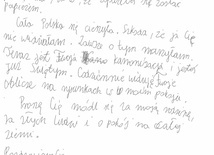 papieżem.
Cała Polska się cieszyła. Szkoda, że ja Cię
nie widziałam. Zawsze o tym marzyłam.
Teraz jest Twoja kanonizacja i jesteś
już Świętym. Codziennie widuję Twoje
oblicze na rysunkach w moim pokoju.
Proszę Cię módl się za moją rodzinę,
za złych ludzi i o pokój na całej
ziemi.